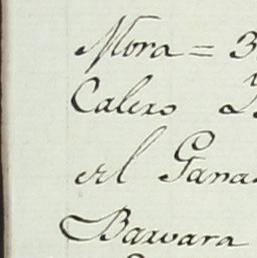 Mora = 3
Calero
el Gana
Barvara